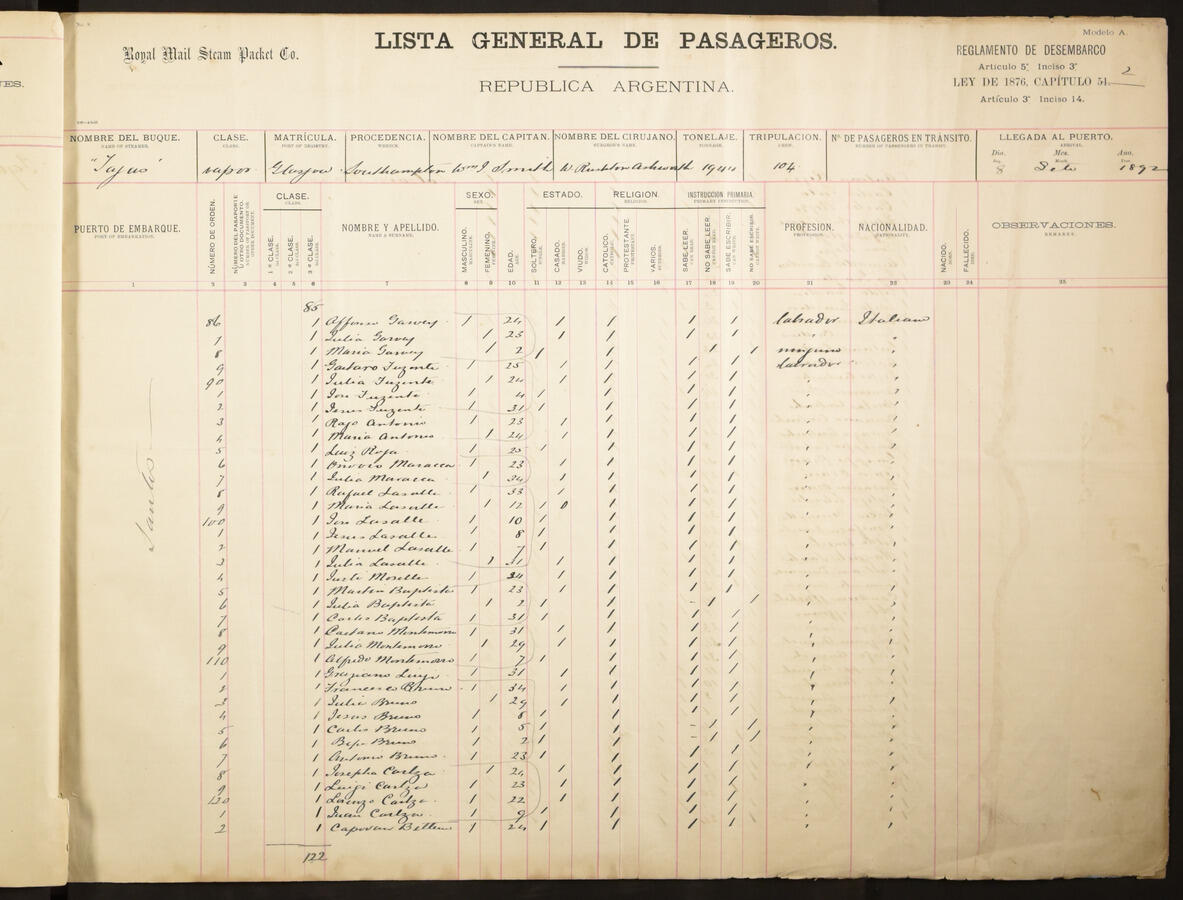 Modelo A.
Royal Mail Steam Packet Co.
LISTA GENERAL DE PASAGEROS.
REPUBLICA ARGENTINA.
REGLAMENTO DE DESEMBARCO
Artículo 5º Inciso 3º
LEY DE 1876, CAPÍTULO 51.
Artículo 3º Inciso 14.
2
NOMBRE DEL BUQUE. CLASE. MATRÍCULA. PROCEDENCIA. NOMBRE DEL CAPITAN. NOMBRE DEL CIRUJANO. TONELAJE. TRIPULACION. Nº DE PASAGEROS EN TRÁNSITO. LLEGADA AL PUERTO.
NAME OF STEAMER. CLASS. PORT OF REGISTRY. WHENCE. CAPTAIN'S NAME. SURGEON'S NAME. TONNAGE. CREW. NUMBER OF PASSENGERS IN TRANSIT. ARRIVAL.
Dia. Mes. Ano.
"Tagus" vapor Glasgow Southampton Wm J. Smith W Rushton Ashworth 1944 104 8 Sete 1892
PUERTO DE EMBARQUE. NÚMERO DE ORDEN. NÚMERO DEL PASAPORTE U OTRO DOCUMENTO. CLASE. 1ª CLASE. 2ª CLASE. 3ª CLASE. NOMBRE Y APELLIDO. SEXO. MASCULINO. FEMENINO. EDAD. ESTADO. SOLTERO. CASADO. VIUDO. RELIGION. CATOLICO. PROTESTANTE. VARIOS. INSTRUCCIÓN PRIMARIA. SABE LEER. NO SABE LEER. SABE ESCRIBIR. NO SABE ESCRIBIR. PROFESION. NACIONALIDAD. NACIDO. FALLECIDO. OBSERVACIONES.
PORT OF EMBARK. NAME & SURNAME. PROFESSION. NATIONALITY. REMARKS.
1 2 3 4 5 6 7 8 9 10 11 12 13 14 15 16 17 18 19 20 21 22 23 24 25
85
Santos
86 1 Affonso Garvey 1 24 1 1 1 1 labrador Italiano
1 1 Julia Garvey 1 23 1 1 1 1 "
8 1 Maria Garvey 1 2 1 1 1 1 ninguno "
9 1 Gaetaro Fuzente 1 25 1 1 1 1 labrador "
90 1 Julia Fuzente 1 24 1 1 1 1 " "
1 1 José Fuzente 1 4 1 1 1 1 " "
2 1 Jesus Fuzente 1 31 1 1 1 1 " "
3 1 Rajo Antonio 1 23 1 1 1 1 " "
4 1 Maria Antonio 1 24 1 1 1 1 " "
5 1 Luiz Roja 1 25 1 1 1 1 " "
6 1 Maracca 1 23 1 1 1 1 " "
7 1 Julia Maracca 1 34 1 1 1 1 " "
8 1 Rafael Lasalle 1 33 1 1 1 1 " "
9 1 Maria Lasalle 1 12 1 0 1 1 1 " "
100 1 José Lasalle 1 10 1 1 1 1 " "
1 1 Jesus Lasalle 1 8 1 1 1 1 " "
2 1 Manuel Lasalle 1 7 1 1 1 1 " "
3 1 Julia Lasalle 1 31 1 1 1 1 " "
4 1 Morelle 1 34 1 1 1 1 " "
5 1 Martin Baptista 1 23 1 1 1 1 " "
6 1 Julia Baptista 1 2 1 1 - 1 1 " "
7 1 Carlos Baptista 1 31 1 1 1 1 " "
8 1 Caetano Montemorro 1 31 1 1 1 1 " "
9 1 Julia Montemorro 1 29 1 1 1 1 " "
110 1 Alfredo Montemorro 1 7 1 1 1 1 " "
1 1 Graziano Luigi 1 31 1 1 1 1 " "
2 1 Francesco Bruno 1 34 1 1 1 1 " "
3 1 Julia Bruno 1 29 1 1 1 1 " "
4 1 Jesus Bruno 1 8 1 1 1 1 " "
5 1 Carlos Bruno 1 5 1 1 - 1 1 " "
6 1 Bepe Bruno 1 2 1 1 - 1 1 " "
7 1 Antonio Bruno 1 23 1 1 1 1 " "
8 1 Josepha Carlza 1 24 1 1 1 1 " "
9 1 Luigi Carlza 1 23 1 1 1 1 " "
120 1 Lorenzo Carlza 1 22 1 1 1 1 " "
1 1 Juan Carlza 1 9 1 1 1 1 " "
2 1 Capovan 1 24 1 1 1 1 " "
122